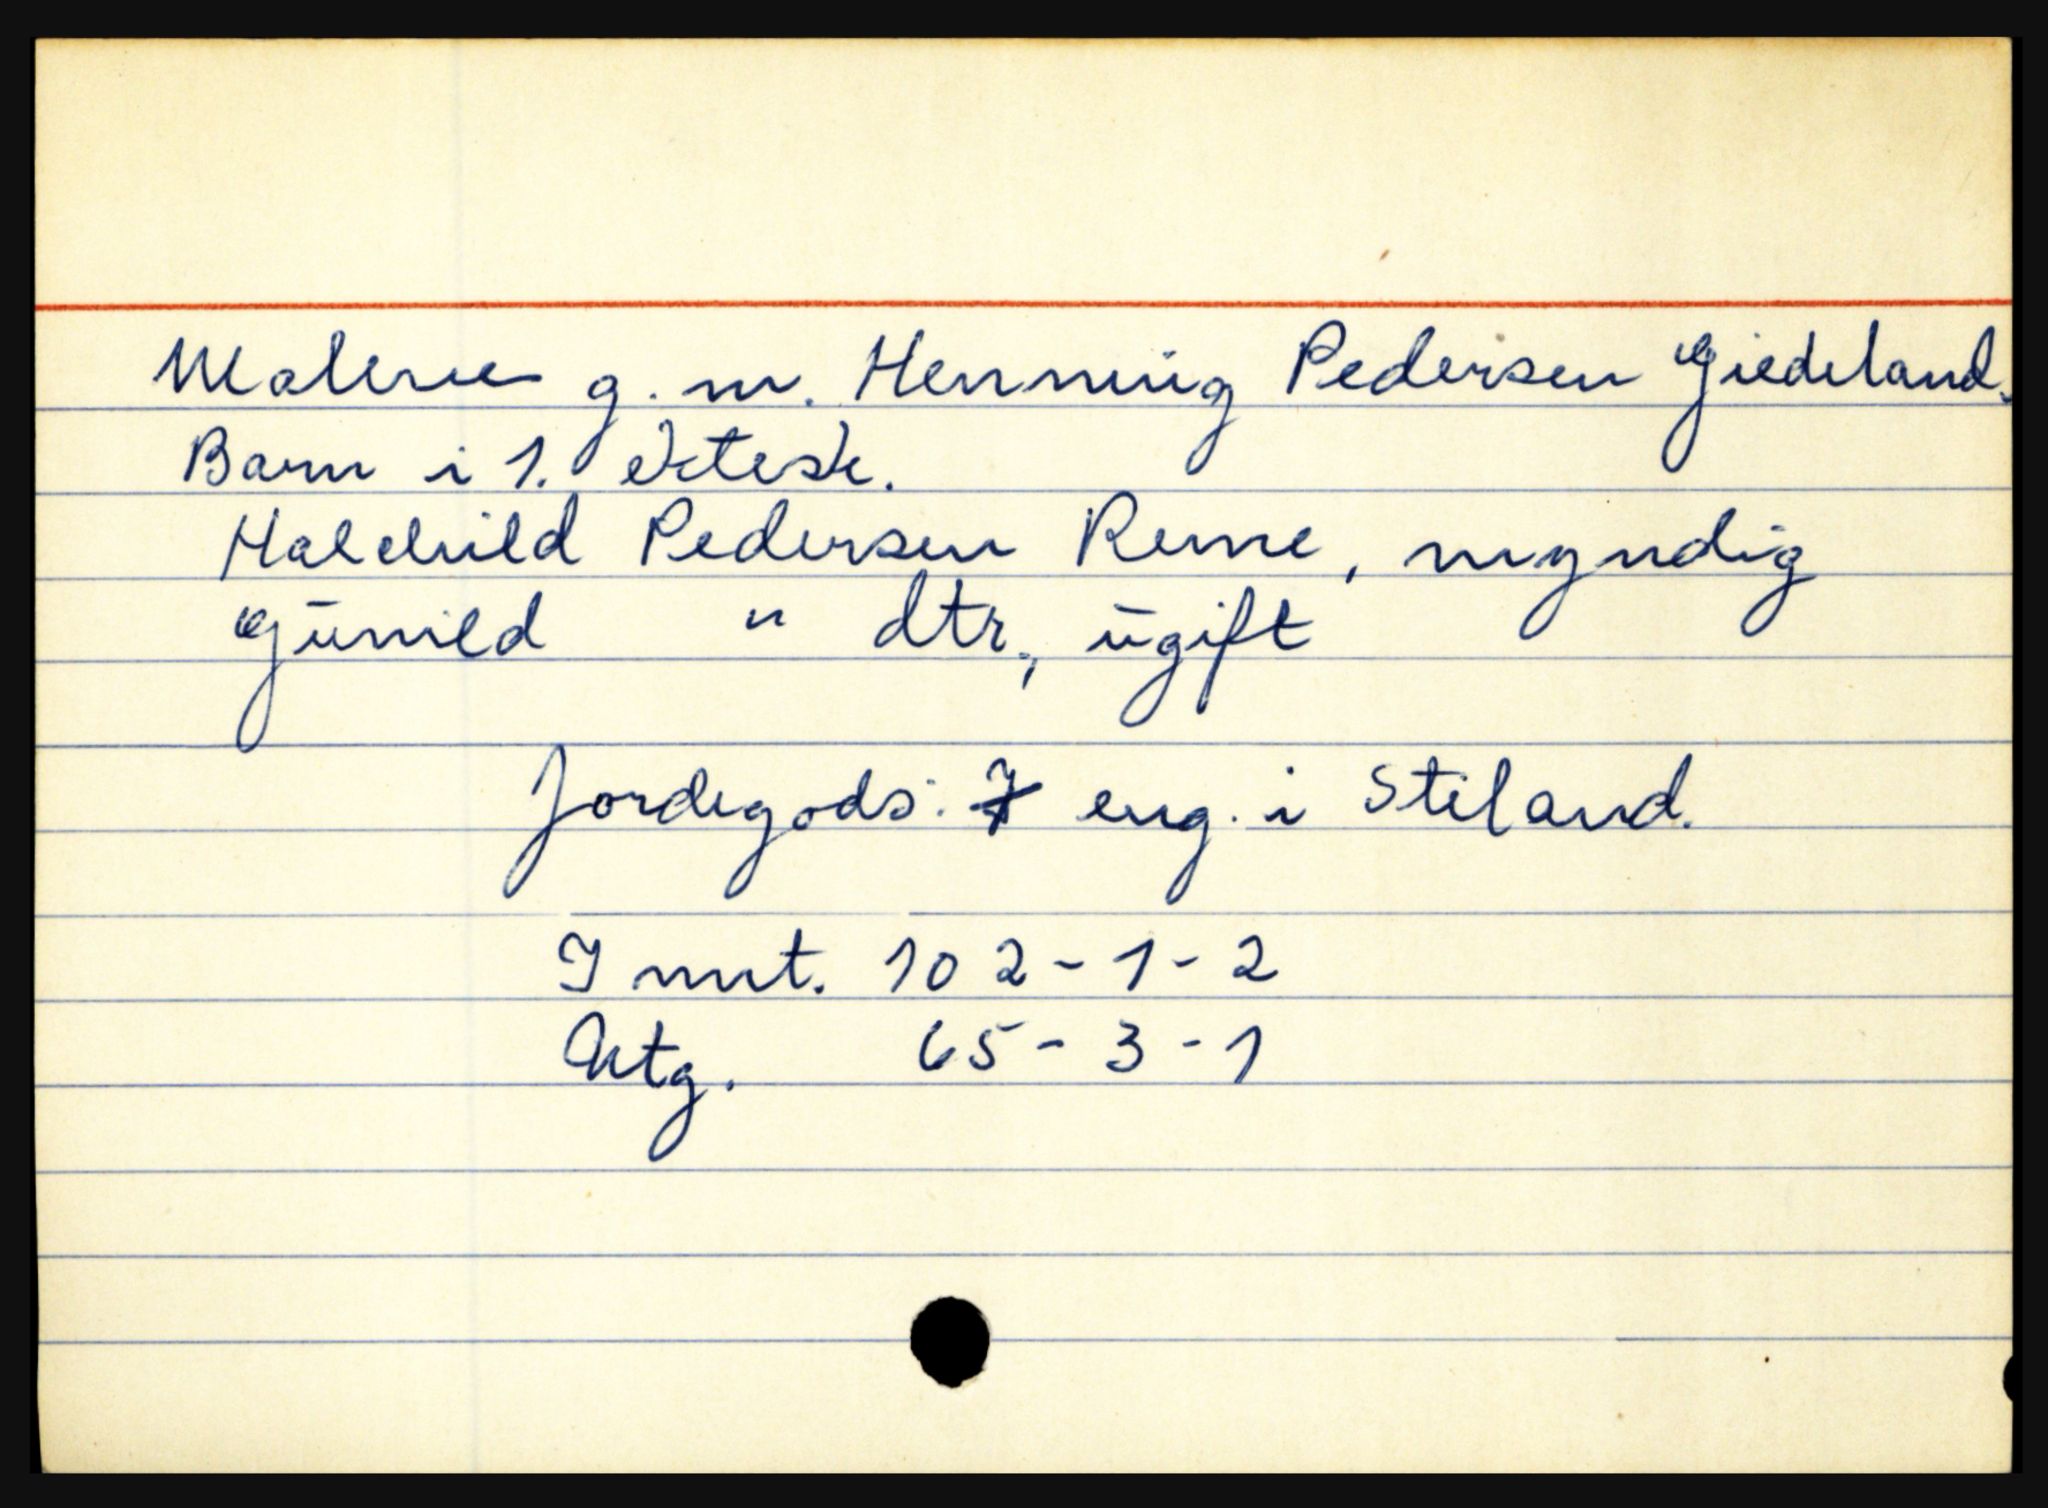 Malene g. m. Henning Pedersen Giedeland.
Barn i 1. ektesk.
Halchild Pedersen Reme, myndig
Gunild " dtr., ugift
Jordegods: 7 eng. i Stiland.
I mnt. 102-1-2
Utg. 65-3-1